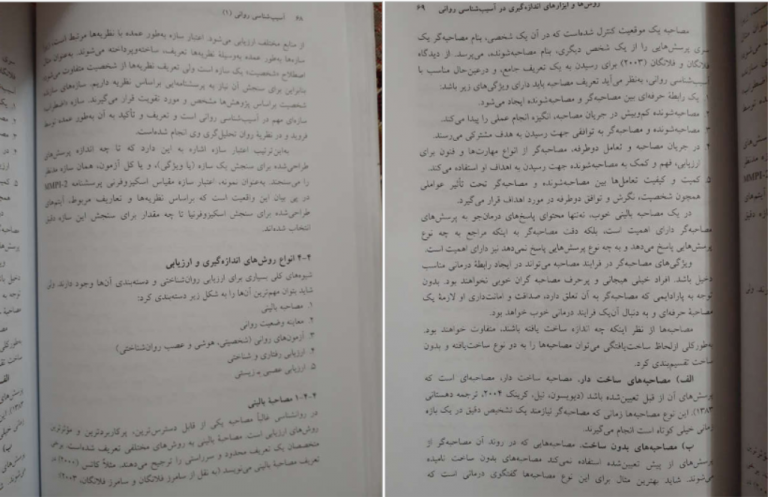 ۶۸ آسیب‌شناسی روانی (۱)
از منابع مختلف ارزیابی می‌شود. اعتبار سازه به‌طور عمده با نظریه‌ها مرتبط است؛ زیرا
سازه‌ها به‌طور عمده به‌وسیلهٔ نظریه‌ها تعریف، ساخته‌وپرداخته می‌شوند. به‌عنوان مثال
اصطلاح «شخصیت» یک سازه است ولی تعریف نظریه‌ها از شخصیت متفاوت می‌شود
بنابراین برای سنجش آن نیاز به پرسشنامه‌ایی براساس نظریه داریم. سازه‌های سازی
شخصیت براساس پژوهش‌ها مشخص و مورد تقویت قرار می‌گیرند. سازه «اضطراب»
سازه‌ای مهم در آسیب‌شناسی روانی است و تعریف و تأکید به آن به‌طور عمده توسط
فروید و در نظریهٔ روان تحلیل‌گری وی انجام شده‌است.
به‌این‌ترتیب اعتبار سازه اشاره به این دارد که تا چه اندازه پرسش‌های
طراحی‌شده برای سنجش یک سازه (یا ویژگی)، و یا کل آزمون، همان سازه مدنظر
را می‌سنجند. به‌عنوان نمونه، اعتبار سازه مقیاس اسکیزوفرنی پرسشنامه MMPI-2
در پی بیان این واقعیت است که براساس نظریه‌ها و تعاریف مربوط، آیتم‌های
طراحی‌شده برای سنجش اسکیزوفرنیا تا چه مقدار برای سنجش این سازه دقیق
انتخاب شده‌اند.
۴-۴ انواع روش‌های اندازه‌گیری و ارزیابی
شیوه‌های کلی بسیاری برای ارزیابی روان‌شناختی و دسته‌بندی آن‌ها وجود دارند ولی
شاید بتوان مهم‌ترین آن‌ها را به شکل زیر دسته‌بندی کرد:
۱. مصاحبه بالینی
۲. معاینه وضعیت روانی
۳. آزمون‌های روانی (شخصیتی، هوشی و عصب روان‌شناختی)
۴. ارزیابی رفتاری و شناختی
۵. ارزیابی عصبی و زیستی
۱-۴-۴ مصاحبهٔ بالینی
در روانشناسی غالباً مصاحبه یکی از قابل دسترس‌ترین، پرکاربردترین و مؤثرترین
روش‌های ارزیابی است. مصاحبهٔ بالینی به روش‌های مختلفی تعریف شده‌است. برخی
متخصصان یک تعریف محدود و سرراستی را ترجیح می‌دهند. مثلاً کاشی (۲۰۰۰) در
تعریف مصاحبهٔ بالینی می‌نویسد (به نقل از سامرز فلانگان و سامرز فلانگان، ۲۰۰۳)
روش‌ها و ابزارهای اندازه‌گیری در آسیب‌شناسی روانی ۶۹
مصاحبه یک موقعیت کنترل شده‌است که در آن یک شخصی، بنام مصاحبه‌گر یک
سری پرسش‌هایی را از یک شخص دیگری، بنام مصاحبه‌شونده، می‌پرسد. از دیدگاه
فلانگان و فلانگان (۲۰۰۳) برای رسیدن به یک تعریف جامع، و درعین‌حال مناسب با
آسیب‌شناسی روانی، به‌نظر می‌آید تعریف مصاحبه باید دارای ویژگی‌های زیر باشد:
۱. یک رابطهٔ حرفه‌ای بین مصاحبه‌گر و مصاحبه‌شونده ایجاد می‌شود.
۲. مصاحبه‌شونده کم‌وبیش در جریان مصاحبه، انگیزه انجام عملی را پیدا می‌کند.
۳. مصاحبه‌شونده و مصاحبه‌گر به توافقی جهت رسیدن به هدف مشترکی می‌رسند.
۴. در جریان مصاحبه و تعامل دوطرفه، مصاحبه‌گر از انواع مهارت‌ها و فنون برای
ارزیابی، فهم و کمک به مصاحبه‌شونده جهت رسیدن به اهداف او استفاده می‌کند.
۵. کمیت و کیفیت تعامل‌ها بین مصاحبه‌شونده و مصاحبه‌گر تحت تأثیر عواملی
همچون شخصیت، نگرش و توافق دوطرفه در مورد اهداف قرار می‌گیرد.
در یک مصاحبه بالینی خوب، نه‌تنها محتوای پاسخ‌های درمان‌جو به پرسش‌های
مصاحبه‌گر دارای اهمیت است، بلکه دقت مصاحبه‌گر به اینکه مراجع به چه نوع
پرسش‌هایی پاسخ می‌دهد و به چه نوع پرسش‌هایی پاسخ نمی‌دهد نیز دارای اهمیت است.
ویژگی‌های مصاحبه‌گر در فرایند مصاحبه می‌تواند در ایجاد رابطهٔ درمانی مناسب
دخیل باشد. افراد خیلی هیجانی و پرحرف مصاحبه گران خوبی نخواهند بود. بدون
توجه به پارادایمی که مصاحبه‌گر به آن تعلق دارد، صداقت و امانت‌داری او لازمهٔ یک
مصاحبهٔ حرفه‌ای و به دنبال آن‌یک فرایند درمانی خوب خواهد بود.
مصاحبه‌ها از نظر اینکه چه اندازه ساخت یافته باشند، متفاوت خواهند بود.
به‌طورکلی ازلحاظ ساخت‌یافتگی می‌توان مصاحبه‌ها را به دو نوع ساخت‌یافته و بدون
ساخت تقسیم‌بندی کرد.
الف) مصاحبه‌های ساخت دار. مصاحبه ساخت دار، مصاحبه‌ای است که
پرسش‌های آن از قبل تعیین‌شده باشد (دیویسون، نیل، کرینگ ۲۰۰۴، ترجمه دهستانی
۱۳۸۳). این نوع مصاحبه‌ها زمانی که مصاحبه‌گر نیازمند یک تشخیص دقیق در یک بازه
زمانی خیلی کوتاه است انجام می‌گیرند.
ب) مصاحبه‌های بدون ساخت. مصاحبه‌هایی که در روند آن مصاحبه‌گر از
پرسش‌های از پیش تعیین‌شده استفاده نمی‌کند مصاحبه‌های بدون ساخت نامیده
می‌شوند. شاید بهترین مثال برای این نوع مصاحبه‌ها گفتگوی درمانی است که